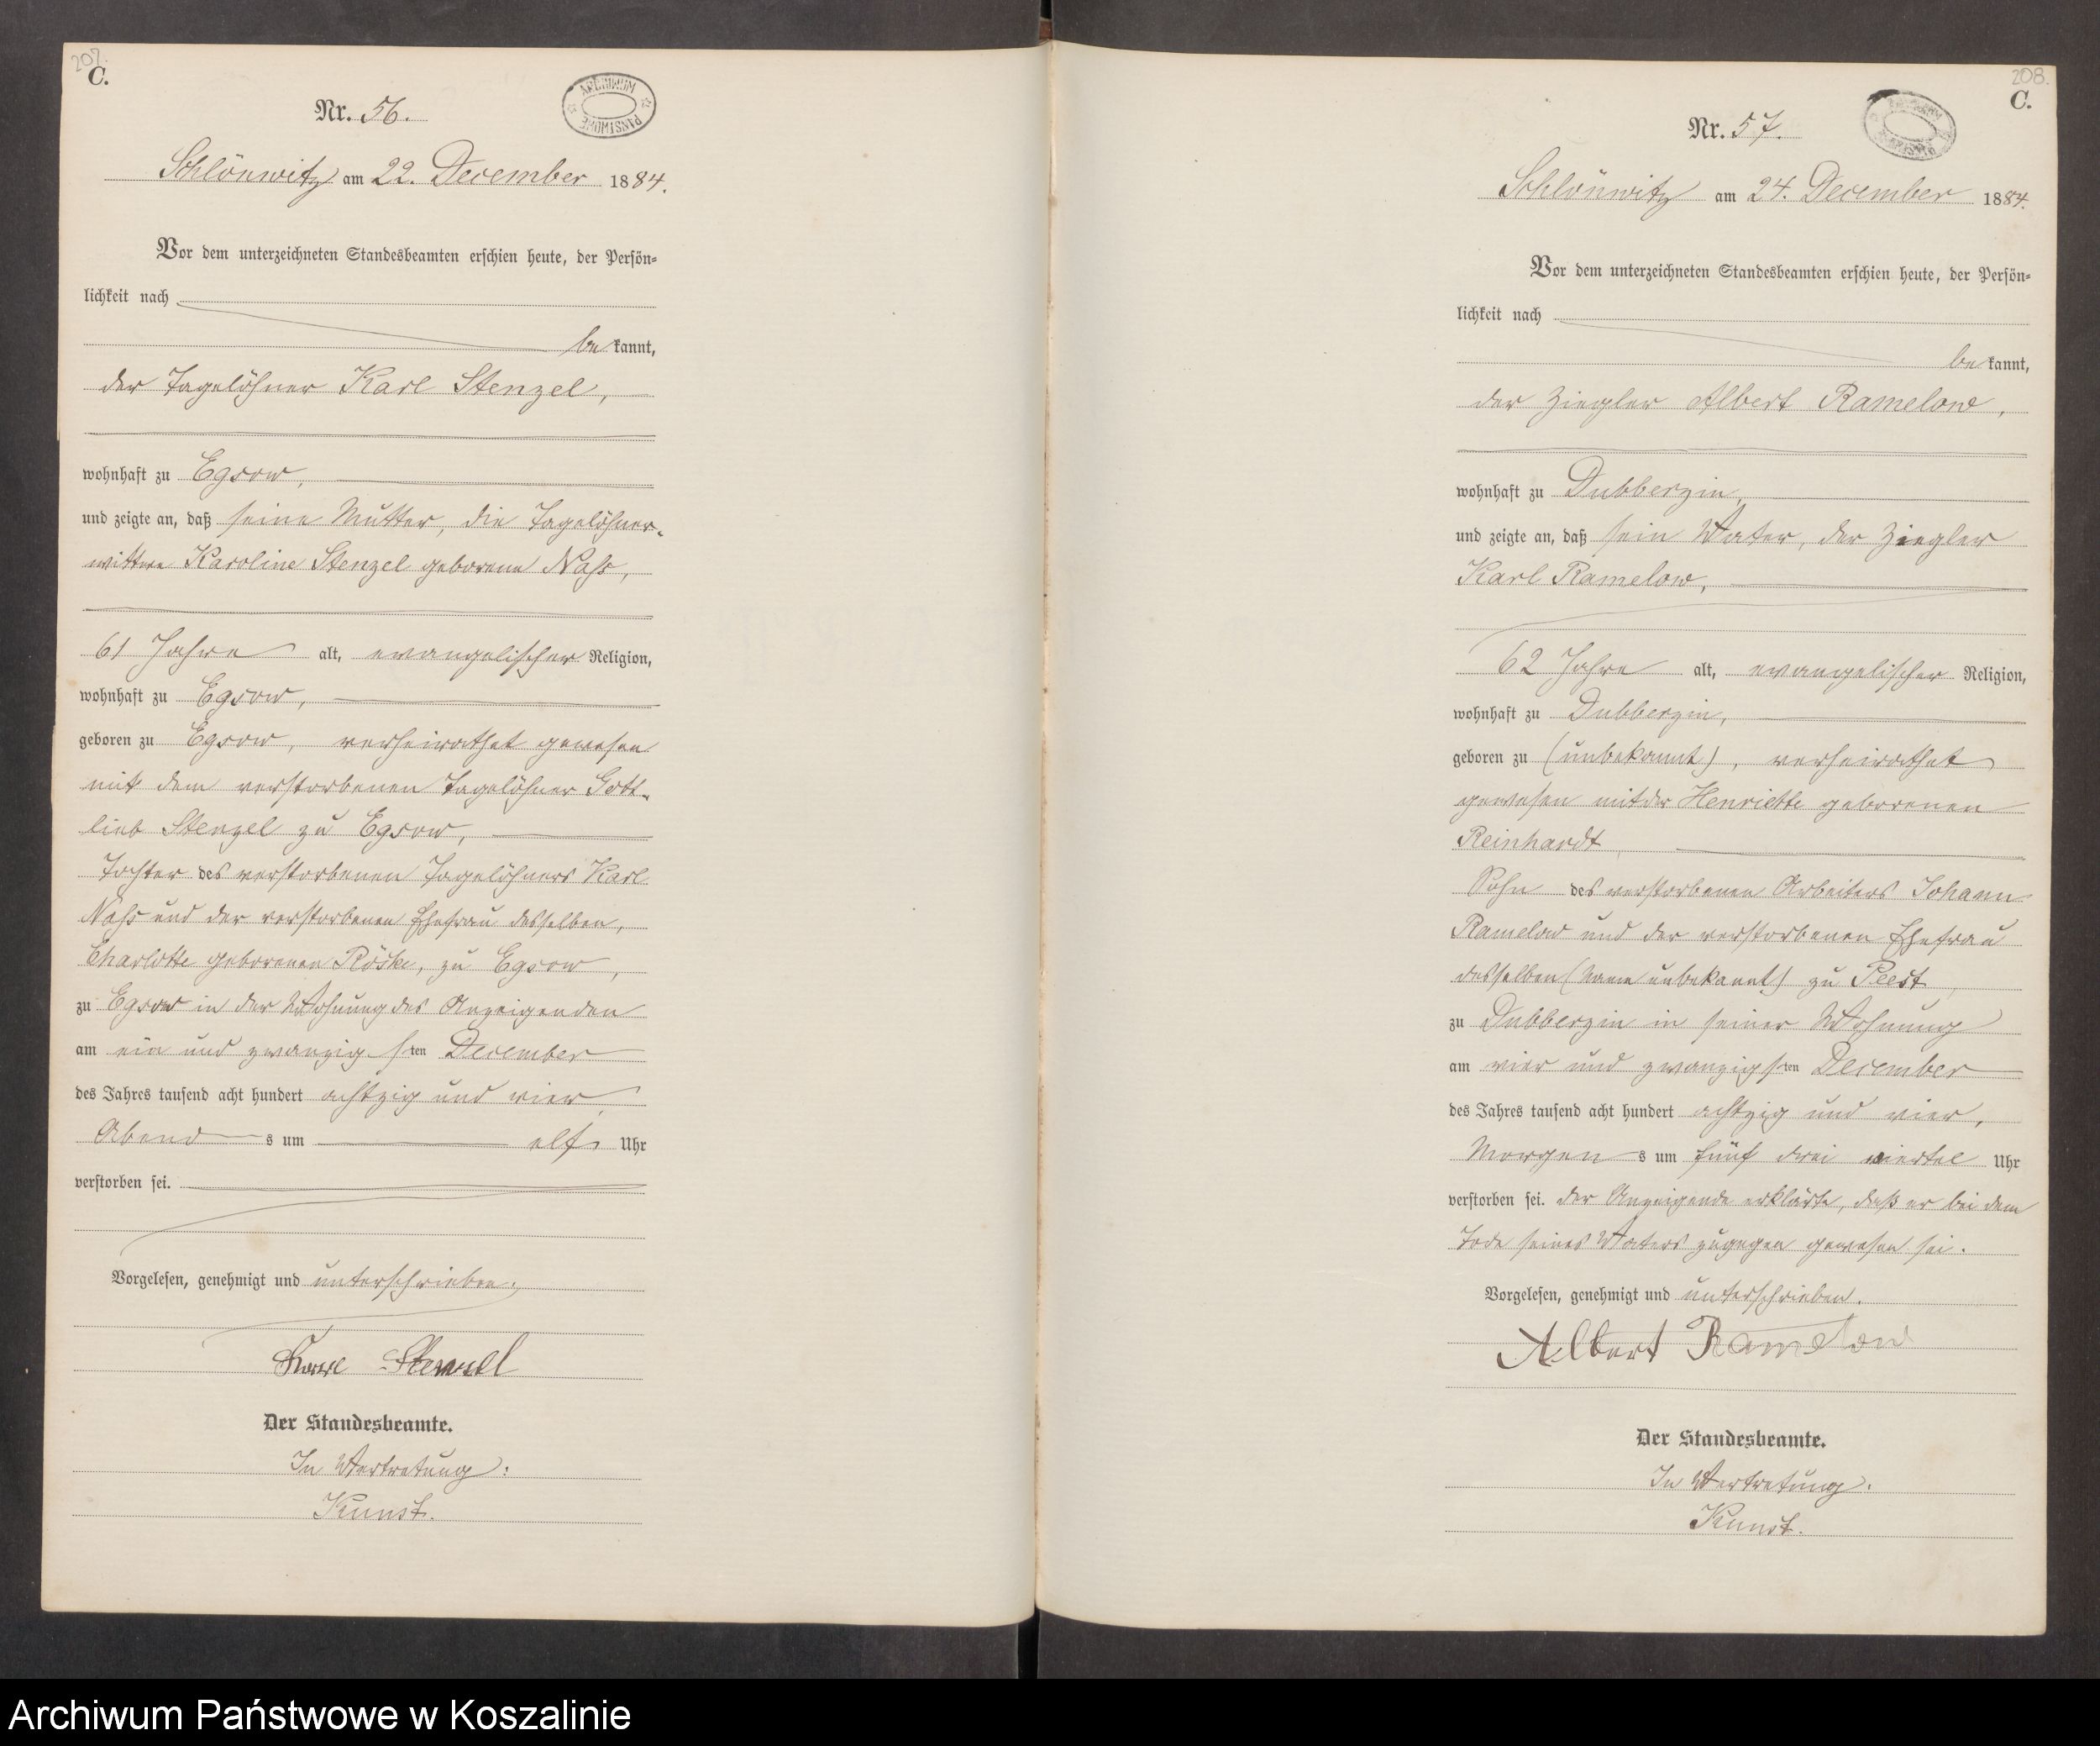 207.
C.
ARCHIWUM PAŃSTWOWE
Nr. 56.
Schlönwitz am 22. December 1884.
Vor dem unterzeichneten Standesbeamten erschien heute, der Persön-
lichkeit nach
be kannt,
der Tagelöhner Karl Stenzel,
wohnhaft zu Egsow,
und zeigte an, daß seine Mutter, die Tagelöhner-
wittwe Karoline Stenzel geborene Nahs,
61 Jahre alt, evangelischer Religion,
wohnhaft zu Egsow,
geboren zu Egsow, verheirathet gewesen
mit dem verstorbenen Tagelöhner Gott-
lieb Stenzel zu Egsow,
Tochter des verstorbenen Tagelöhners Karl
Nahs und der verstorbenen Ehefrau desselben,
Charlotte geborenen Röske, zu Egsow,
zu Egsow in der Wohnung des Anzeigenden
am ein und zwanzigsten December
des Jahres tausend acht hundert achtzig und vier,
Abends um elf Uhr
verstorben sei.
Vorgelesen, genehmigt und unterschrieben.
Stenzel
Der Standesbeamte.
In Vertretung:
Kunst.
208.
C.
Nr. 57.
Schlönwitz am 24. December 1884.
Vor dem unterzeichneten Standesbeamten erschien heute, der Persön-
lichkeit nach
be kannt,
der Ziegler Albert Ramelow,
wohnhaft zu Dubberzin,
und zeigte an, daß sein Vater, der Ziegler
Karl Ramelow,
62 Jahre alt, evangelischer Religion,
wohnhaft zu Dubberzin,
geboren zu (unbekannt), verheirathet
gewesen mit der Henriette geborenen
Reinhardt,
Sohn des verstorbenen Arbeiters Johann
Ramelow und der verstorbenen Ehefrau
desselben (Name unbekannt) zu Peest,
zu Dubberzin in seiner Wohnung
am vier und zwanzigsten December
des Jahres tausend acht hundert achtzig und vier,
Morgens um fünf drei viertel Uhr
verstorben sei. Der Anzeigende erklärte, daß er bei dem
Tode seines Vaters zugegen gewesen sei.
Vorgelesen, genehmigt und unterschrieben.
Albert Ramelow
Der Standesbeamte.
In Vertretung:
Kunst.
Archiwum Państwowe w Koszalinie